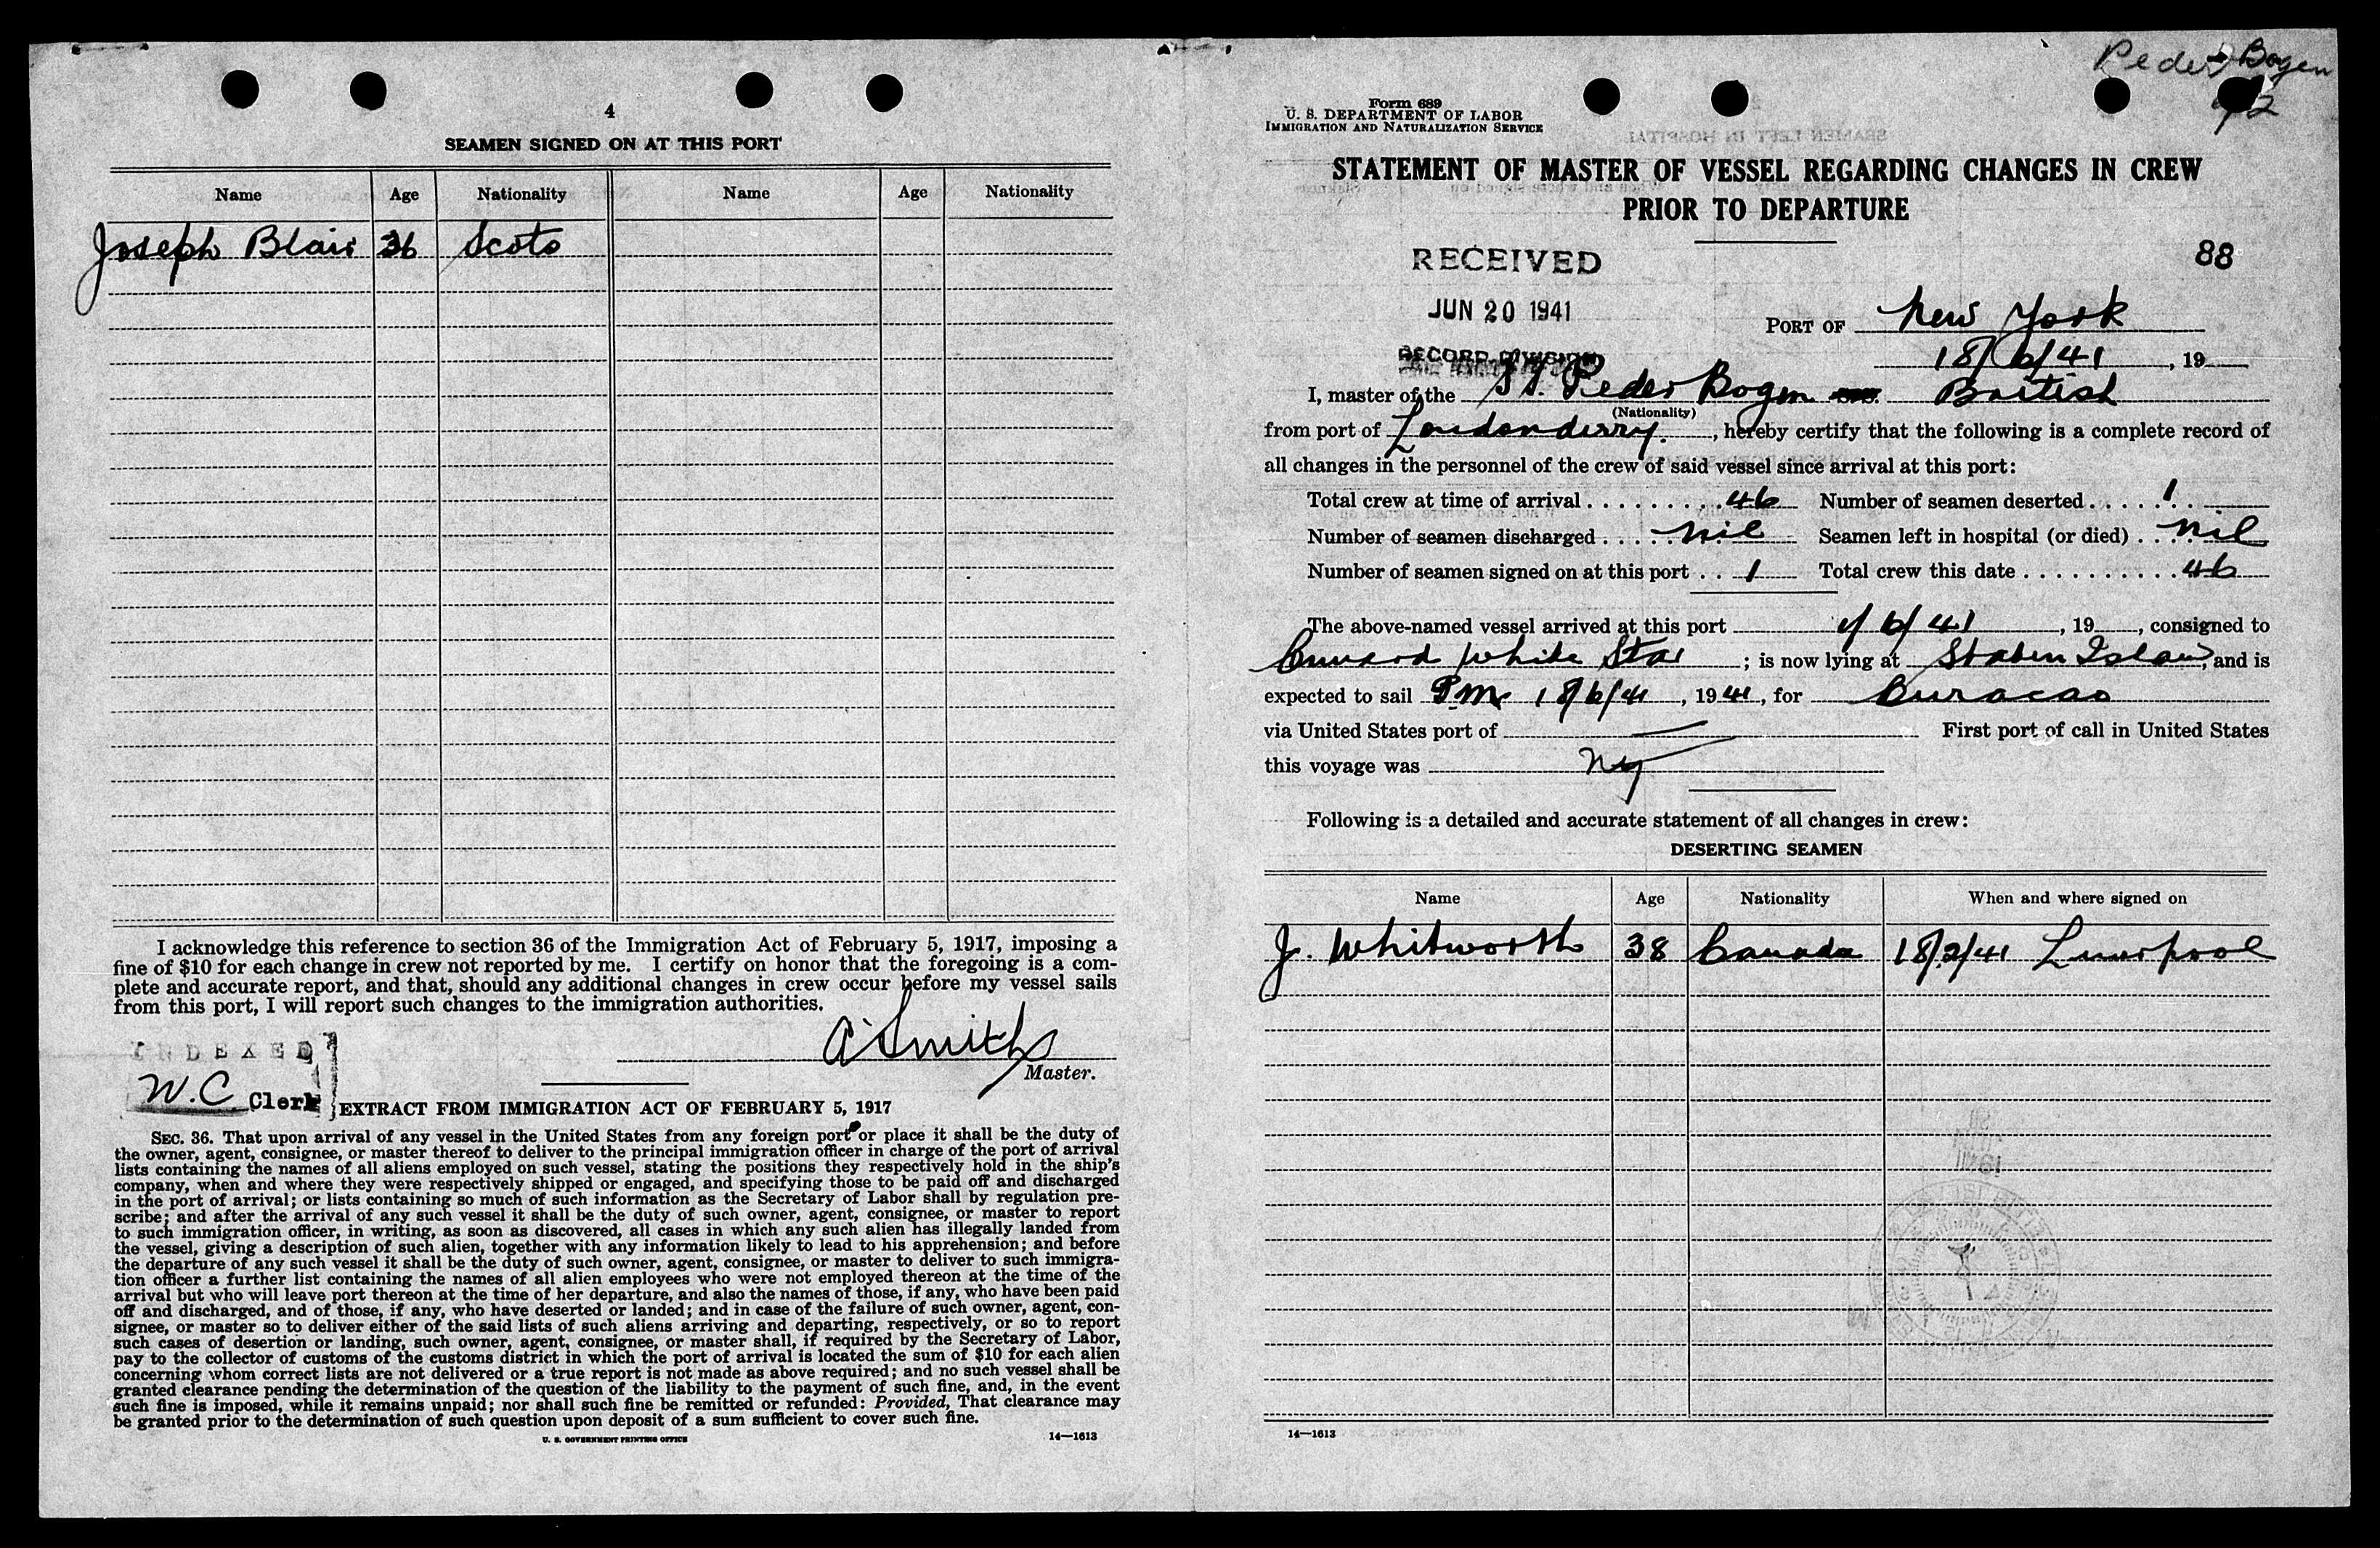 4
SEAMEN SIGNED ON AT THIS PORT
Name Age Nationality Name Age Nationality
Joseph Blair 36 Scots
I acknowledge this reference to section 36 of the Immigration Act of February 5, 1917, imposing a
fine of $10 for each change in crew not reported by me. I certify on honor that the foregoing is a com-
plete and accurate report, and that, should any additional changes in crew occur before my vessel sails
from this port, I will report such changes to the immigration authorities.
A Smith
Master.
INDEXED
W.C. Clerk
EXTRACT FROM IMMIGRATION ACT OF FEBRUARY 5, 1917
SEC. 36. That upon arrival of any vessel in the United States from any foreign port or place it shall be the duty of
the owner, agent, consignee, or master thereof to deliver to the principal immigration officer in charge of the port of arrival
lists containing the names of all aliens employed on such vessel, stating the positions they respectively hold in the ship's
company, when and where they were respectively shipped or engaged, and specifying those to be paid off and discharged
in the port of arrival; or lists containing so much of such information as the Secretary of Labor shall by regulation pre-
scribe; and after the arrival of any such vessel it shall be the duty of such owner, agent, consignee, or master to report
to such immigration officer, in writing, as soon as discovered, all cases in which any such alien has illegally landed from
the vessel, giving a description of such alien, together with any information likely to lead to his apprehension; and before
the departure of any such vessel it shall be the duty of such owner, agent, consignee, or master to deliver to such immigra-
tion officer a further list containing the names of all alien employees who were not employed thereon at the time of the
arrival but who will leave port thereon at the time of her departure, and also the names of those, if any, who have been paid
off and discharged, and of those, if any, who have deserted or landed; and in case of the failure of such owner, agent, con-
signee, or master so to deliver either of the said lists of such aliens arriving and departing, respectively, or so to report
such cases of desertion or landing, such owner, agent, consignee, or master shall, if required by the Secretary of Labor,
pay to the collector of customs of the customs district in which the port of arrival is located the sum of $10 for each alien
concerning whom correct lists are not delivered or a true report is not made as above required; and no such vessel shall be
granted clearance pending the determination of the question of the liability to the payment of such fine, and, in the event
such fine is imposed, while it remains unpaid; nor shall such fine be remitted or refunded: Provided, That clearance may
be granted prior to the determination of such question upon deposit of a sum sufficient to cover such fine.
U. S. GOVERNMENT PRINTING OFFICE 14—1613
Peder Bogen
Form 689
U. S. DEPARTMENT OF LABOR
IMMIGRATION AND NATURALIZATION SERVICE
STATEMENT OF MASTER OF VESSEL REGARDING CHANGES IN CREW
PRIOR TO DEPARTURE
RECEIVED
88
JUN 20 1941
PORT OF New York
RECORD DIVISION
18/6/41, 19
I, master of the Peder Bogen British
(Nationality)
from port of Londonderry, hereby certify that the following is a complete record of
all changes in the personnel of the crew of said vessel since arrival at this port:
Total crew at time of arrival 46 Number of seamen deserted 1
Number of seamen discharged nil Seamen left in hospital (or died) nil
Number of seamen signed on at this port 1 Total crew this date 46
The above-named vessel arrived at this port /6/41, 19, consigned to
Cunard White Star; is now lying at Staten Island, and is
expected to sail P.M. 18/6/41, 1941, for Curacao
via United States port of — First port of call in United States
this voyage was NY
Following is a detailed and accurate statement of all changes in crew:
DESERTING SEAMEN
Name Age Nationality When and where signed on
J. Whitworth 38 Canada 18/2/41 Liverpool
14—1613